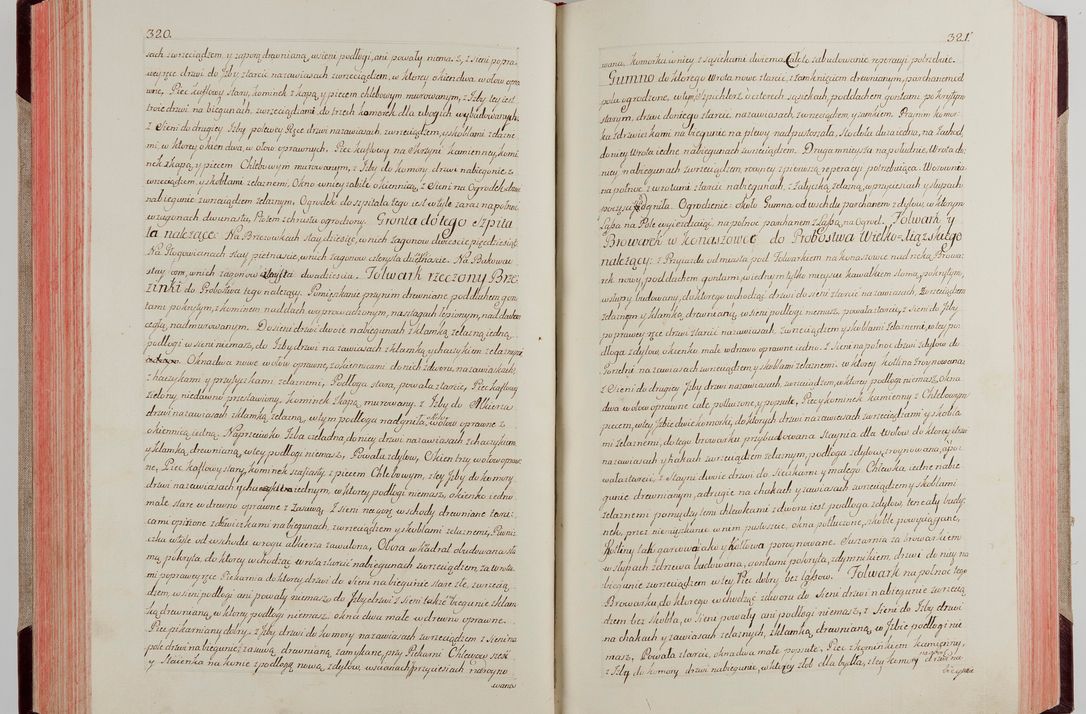 320.
sach zwrzeciądzem, y zaporą drewnianą, wsieni podłogi, ani powały niema. Z, z Sieni po pra
wey ręce drzwi do Izby z tarcic na zawiasach zwrzeciądzem, w ktorey okien dwa, w ołow opra
wne, Piec kaflowy stary, kominek z kapą, y piecem chlebowym murowanym, z Izby tey iest
troie drzwi na biegunach, zwrzeciądzami, do trzech komorek dla ubogich wybudowanych.
Z Sieni do drugiey Izby po lewey Ręce drzwi na zawiasach, zwrzeciądzem, y skoblami żelazne
mi, w ktorey okien dwa, w ołow oprawnych. Piec kaflowy na Skrzyni kamienney, komi
nek z kapą, y piecem Chlebowym murowanym, z Izby do komory, drzwi na biegunie, z
wrzeciądzem, y skoblami żelaznemi, Okno w niey zabite okiennicą, z Sieni na Ogrodek drzwi
na biegunie zwrzeciądzem żelaznym, Ogrodek do szpitala tego iest w tyle zaraz na pułnoc
wzagonach dwunastu, Płotem z chrustu ogrodzony. Gronta do tego Szpita
la należące: Na Brzozowkach stay dziesięć, w nich zagonow dwieście pięćdziesiąt
Na Głogowianach stay piętnaście, w nich zagonow czterysta dwanaście. Na Bukowcu
stay ośm, w nich zagonow dwadziescia. Folwark rzeczony Brze
zinki do Probostwa tego należący. Pomięszkanie przy nim drewniane pod dachem gon
tami pokrytym, z kominem nad dach wyprowadzonym, na strągach lepionym, nad dachem
cegłą, nadmurowanym. Do sieni drzwi dwoie na biegunach z klamką żelazną iedną,
podłogi w sieni niemasz, do Izby drzwi na zawiasach z klamką y haczykiem żelaznym
Okna dwa nowe w ołow oprawne, z okiennicami do nich z dworu, na zawiaskach
z haczykami y przytyczkami żelaznemi, Podłoga stara, powała z tarcic, Piec kaflowy
zielony, niedawno przestawiony, kominek z kapą, murowany. z Izby do Alkierza
drzwi na zawiasach z klamką żelazną, w tym podłoga nadgniła, okno w ołow oprawne z
okiennicą iedną. Naprzeciwko Izba czeladna, do niey drzwi na zawiasach z haczykiem
y klamką, drewnianą, w tey podłogi niemasz, Powała z dylow, Okien trzy w ołow opraw
ne, Piec kaflowy stary, kominek szafiasty z piecem Chlebowym, z tey Izby do komory
drzwi na zawiasach y haczykiem iednym, w ktorey podłogi niemasz, okienko iedno
małe, stare w drewno oprawne z Zasuwą. Z sieni na gorę wschody drewniane tarci
cami opiżone zdrzwiczkami na biegunach, zwrzeciądzem, y skoblami żelaznemi, Piwni
czka w tyle od wschodu w rogu alkierza zawalona, Obora w kwadrat obudowana sło
mą, pokryta, do ktorey wchodząc wrota z tarcic na biegunach zwrzeciądzem, za wrota
mi po prawey ręce Piekarnia do ktorey drzwi do Sieni na biegunie stare złe, zwrzecią
dzem, w sieni podłogi ani powały niemasz, do Izby drzwi z Sieni także biegunie z klam
ką drewnianą, w ktorey podłogi niemasz, okna dwa małe w drewno oprawne.
Piec piekarniany dobry. z Izby drzwi do komory na zawiasach zwrzeciądzem z Sieni na
pole drzwi na biegunie z zasuwą drewnianą zamykane, przy Piekarni Chlewow sześć
y Staienka na konie z podłogą nową z dylow, w ścianach y przyciesiach nareyno
wana
321.
wana, komorka w niey z sąsiekami dwiema, Całe to zabudowanie reperacyi potrzebuie.
Gumno do ktorego Wrota nowe z tarcic, z zamknięciem drewnianym, parchanem od
pola ogrodzone, w tym Szpichlerz o czterech sąsiekach, pod dachem gontami pokrytym
starym, drzwi do niego z tarcic, na zawiasach, zwrzeciądzem, y zamkiem. Przy nim komor
ka zdrzwiczkami na biegunie na plewy nad pustoszała, Stodoła duża iedna, na Zachod,
do niey Wrota iedne na biegunach zwrzeciądzem. Druga mnieysza na południe, Wrota do
niey na biegunach zwrzeciądzem, rowney z pierwszą reperacyi potrzebuiąca. Wozownia
na pułnoc z wrotami z tarcic na biegunach, z Zatyczką żelazną, w przyciesiach y słupach
poczęści nadgniła. Ogrodzenie około Gumna od wschodu parchanem z dylow, w ktorym
Łasa na Pole wyieżdżaiąc na pułnoc parchanem z Łasą na Ogrod. Folwark y
Browark w konaszowce do Probostwa Wielko-Xiąskiego
należący: z Przyiazdu od miasta pod Folwarkiem na konaszowce nad rzeką Browa
rek nowy, pod dachem gontami, w iednym tylko mieyscu kawałkiem słomą, pokrytym,
w słupy, budowany, do ktorego wchodząc drzwi do sieni z tarcic na zawiasach, zwrzeciądzem
żelaznym y klamką, drewnianą, w sieni podłogi niemasz, powała z tarcic, z sieni do Izby
po prawey ręce drzwi z tarcic na zawiasach, zwrzeciądzem y skoblami żelaznemi, w tey po
dłoga z dylow, okienko małe w drewno oprawne iedno. Z Sieni na pułnoc drzwi z dylow do
Gorzelni na zawiasach zwrzeciądzem y skoblami żelaznemi, w ktorey kotlina zroynowana
z Sieni do drugiey Izby drzwi na zawiasach, zwrzeciądzem, w ktorey podłogi niemasz, Okna
dwa w ołow oprawne całe, potłuczone, y popsute, Piec y kominek kamienny z Chlebowym
piecem, w tey Izbie dwie komorki, do ktorych drzwi na zawiasach zwrzeciądzami y skobla
mi żelaznemi, do tego browarku przybudowana Staynia dla Wołow do ktorey drzwi
na zawiasach y hakach zwrzeciądzem żelaznym, podłoga z dylow, zroynowana, a po
wała z tarcic, z Stayni dwoie drzwi do Sieczkarni y małego Chlewka iedne na bie
gunie drewnianym, a drugie na chakach y zawiasach zwrzeciądzem y skoblami
żelaznemi pomiędzy temi chlewkami zdworu iest podłoga z dylow, ten cały budy
nek, przez niemieszkanie w nim pustoszeie, okna potłuczone, skoble powyciągane,
kotliny tak garcowa iako y kotłowa poroynowane. Suszarnia za browarkiem
w słupach z drzewa budowana, gontami pokryta, z dymnikiem, drzwi do niey na
biegunie zwrzeciądzem w tey Piec dobry bez łassow. Folwark na pułnoc tego
Browarku, do ktorego wchodząc z dworu do Sieni drzwi na biegunie zwrzecią
dzem bez Skobla, w Sieni powały ani podłogi niemasz, z Sieni do Izby drzwi
na chakach y zawiasach żelaznych, z klamką, drewnianą, w Izbie podłogi nie
masz, Powała z tarcic, okna dwa małe popsute, Piec z kominkiem kamienny,
z Izby do komory drzwi na biegunie, w ktorey żłob dla bydła, z tey komory drzwi na
biegunie